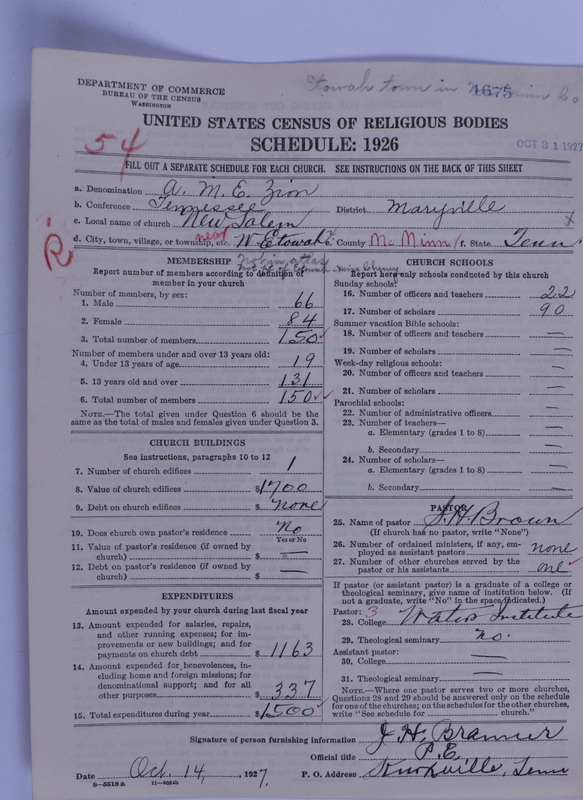 DEPARTMENT OF COMMERCE
BUREAU OF THE CENSUS
WASHINGTON
Etowah town in McMinn Co
1675
UNITED STATES CENSUS OF RELIGIOUS BODIES
SCHEDULE: 1926
OCT 31 1927
54
FILL OUT A SEPARATE SCHEDULE FOR EACH CHURCH. SEE INSTRUCTIONS ON THE BACK OF THIS SHEET
a. Denomination A. M. E. Zion
b. Conference Tennessee District Maryville
c. Local name of church New Salem x
d. City, town, village, or township, etc. near W. Etowah e. County McMinn f. State Tenn
R
MEMBERSHIP Not in atlas
Report number of members according to definition of
member in your church
Number of members, by sex:
1. Male 66
2. Female 84
3. Total number of members 150 ✓
Number of members under and over 13 years old:
4. Under 13 years of age 19
5. 13 years old and over 131
6. Total number of members 150 ✓✓
NOTE.—The total given under Question 6 should be
same as the total of males and females given under Question 3.
CHURCH BUILDINGS
See instructions, paragraphs 10 to 12
7. Number of church edifices 1
8. Value of church edifices $1700
9. Debt on church edifices $ none
10. Does church own pastor's residence? No
Yes or No
11. Value of pastor's residence (if owned by
church) $ —
12. Debt on pastor's residence (if owned by
church) $ —
EXPENDITURES
Amount expended by your church during last fiscal year
13. Amount expended for salaries, repairs,
and other running expenses; for im-
provements or new buildings; and for
payments on church debt $ 1163
14. Amount expended for benevolences, in-
cluding home and foreign missions; for
denominational support; and for all
other purposes $ 337
15. Total expenditures during year $1500 ✓
CHURCH SCHOOLS
Report here only schools conducted by this church
Sunday schools:
16. Number of officers and teachers 22
17. Number of scholars 90
Summer vacation Bible schools:
18. Number of officers and teachers —
19. Number of scholars —
Week-day religious schools:
20. Number of officers and teachers —
21. Number of scholars —
Parochial schools:
22. Number of administrative officers —
23. Number of teachers—
a. Elementary (grades 1 to 8) —
b. Secondary —
24. Number of scholars—
a. Elementary (grades 1 to 8) —
b. Secondary —
PASTOR
25. Name of pastor Brown
(If church has no pastor, write "None")
26. Number of ordained ministers, if any, em-
ployed as assistant pastors none
27. Number of other churches served by the
pastor or his assistants one ✓
If pastor (or assistant pastor) is a graduate of a college or
theological seminary, give name of institution below. (If
not a graduate, write "No" in the space indicated.)
Pastor: 3
28. College Waters Institute
29. Theological seminary no.
Assistant pastor:
30. College —
31. Theological seminary —
NOTE.—Where one pastor serves two or more churches,
Questions 28 and 29 should be answered only on the schedule
for one of the churches; on the schedules for the other churches,
write "See schedule for church."
Signature of person furnishing information J. H. Branner
Official title P. E.
Date Oct. 14, 1927. P. O. Address Knoxville, Tenn
8—5518 a